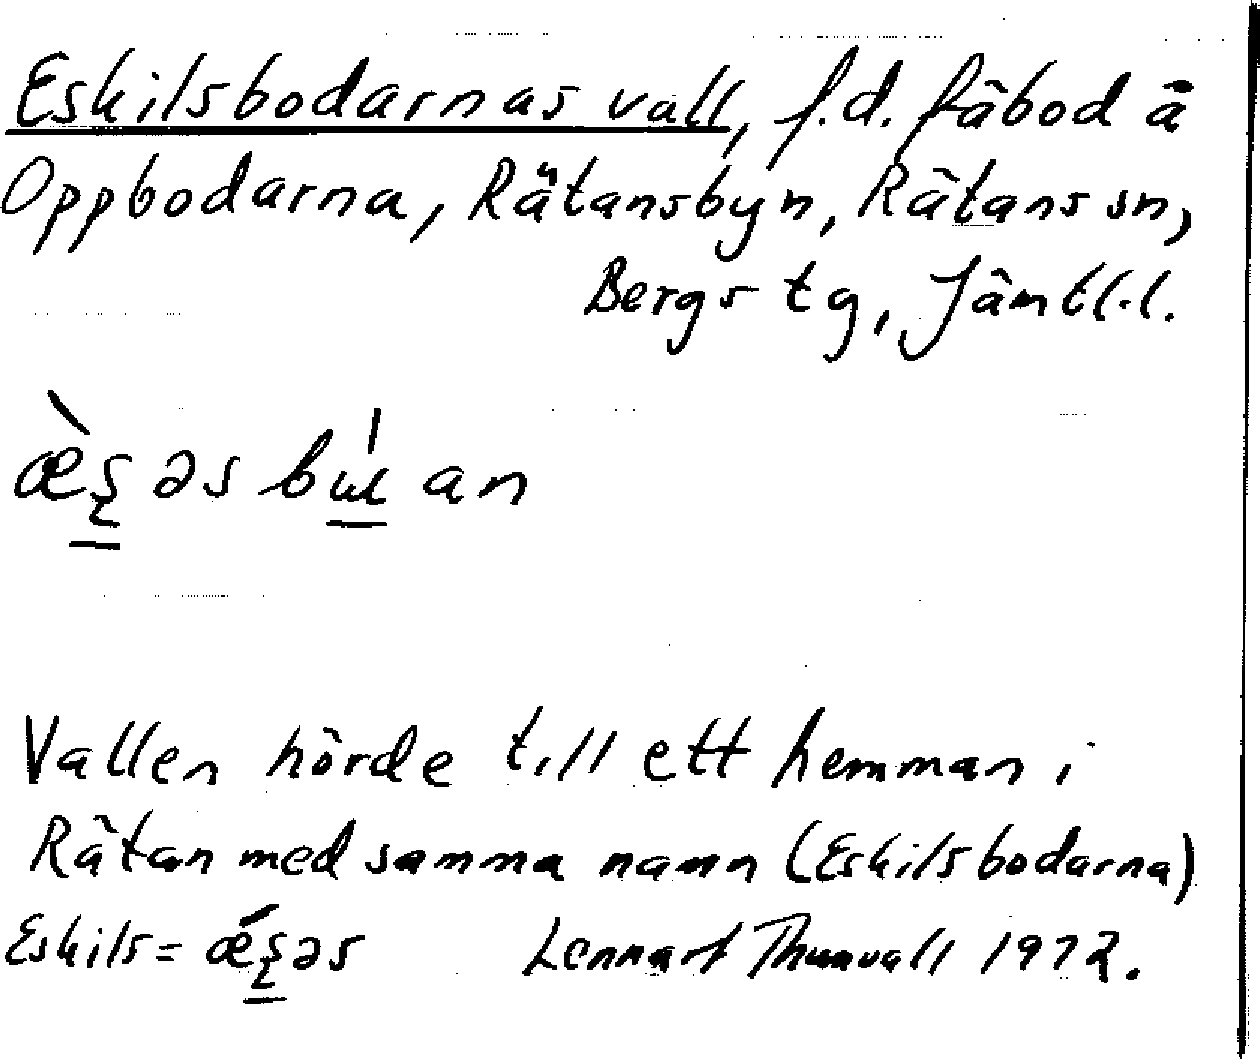 Eskilsbodarnas vall, f.d. fäbod å
Oppbodarna, Rätansbyn, Rätans sn,
Bergs tg, Jämtl.l.
Vallen hörde till ett hemman i
Rätan med samma namn (Eskilsbodarna)
Eskils= Lennart Thunvall 1972.